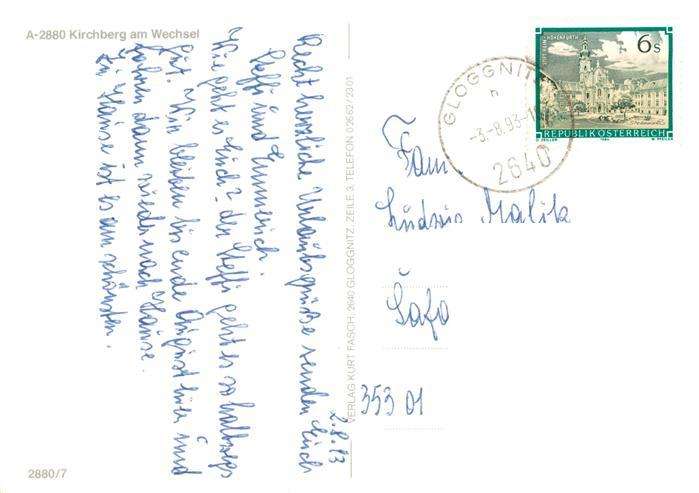 A-2880 Kirchberg am Wechsel
2.8.93
Recht herzliche Urlaubsgrüße senden Euch
Steffi und Emmerich.
Wie geht es Euch? der Steffi geht es so halbwegs
gut. Wir bleiben bis ende August hier und
fahren dann wieder nach Hause.
Zu Hause ist es am schönsten.
2880/7
VERLAG KURT FASCH, 2640 GLOGGNITZ, ZEILE 3, TELEFON 0 26 62 / 23 01
GLOGGNITZ
-3.-8.93-
2640
STIFT HOHENFURTH
6 S
REPUBLIK ÖSTERREICH
Fam.
Ľudvis Malik
Šafa
353 01